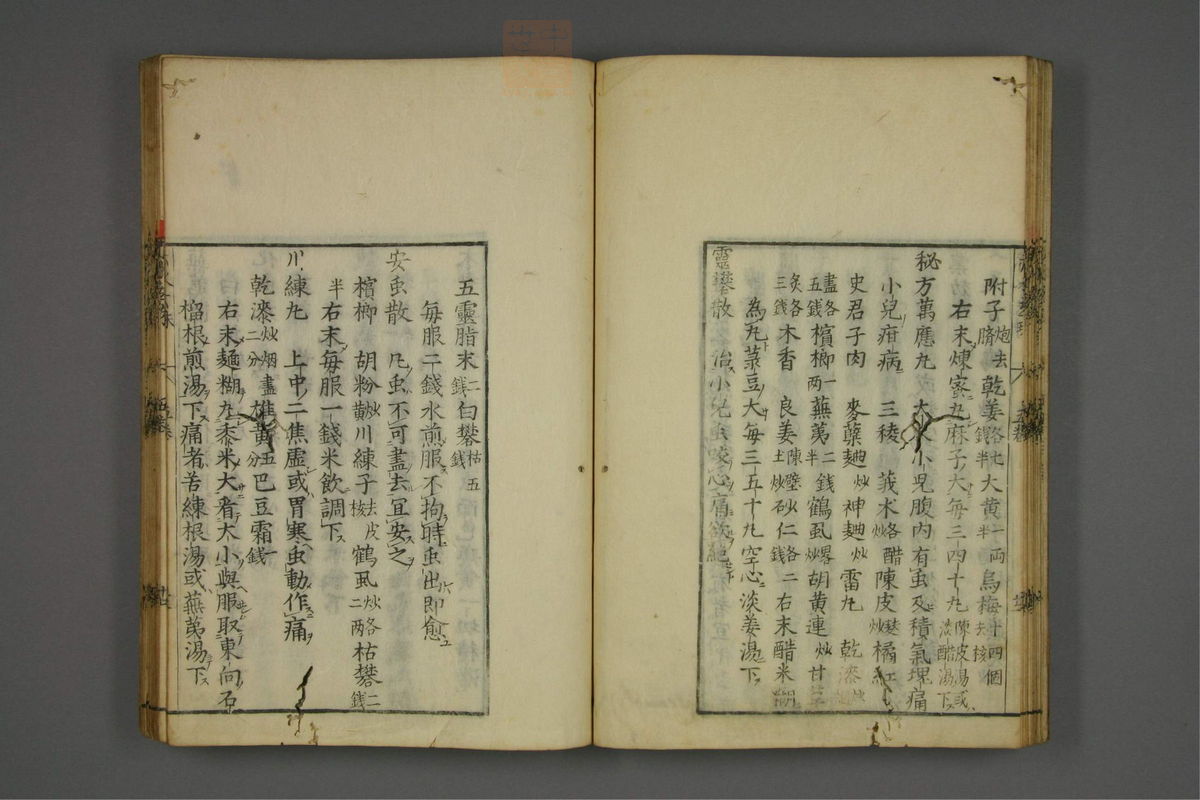 附子炮去臍乾姜各七錢半大黃一両半烏梅十四個去核
右末煉蜜丸麻子大每三四十丸陳皮湯或淡醋湯下
秘方萬應丸 大人小児腹内有虫及積氣塊痛
小兒疳病 三稜 莪朮各醋炒陳皮 橘紅
史君子肉 麥蘖麯炒 神麯炒 雷丸 乾漆炒
盡各五錢檳榔一両蕪荑二錢半鶴虱炒畧胡黃連炒甘
炙各三錢木香 良姜陳壁土炒砂仁各二錢右末醋米糊
為丸菉豆大每三五十丸空心淡姜湯下
靈礬散 治小兒虫咬心痛欲絕
五靈脂末二錢白礬枯五錢
每服二錢水煎服不拘時虫出即愈
安虫散 凡虫不可盡去宜安之
檳榔 胡粉炒黃川練子去皮核鶴虱炒各二両枯礬二錢
半右末每服一錢米飲調下
川練丸 上中二焦虛或胃寒虫動作痛
乾漆炒烟盡二分雄黃五分巴豆霜一錢
右末麺糊丸黍米大看大小與服取東向石
榴根煎湯下痛者苦練根湯或蕪荑湯下